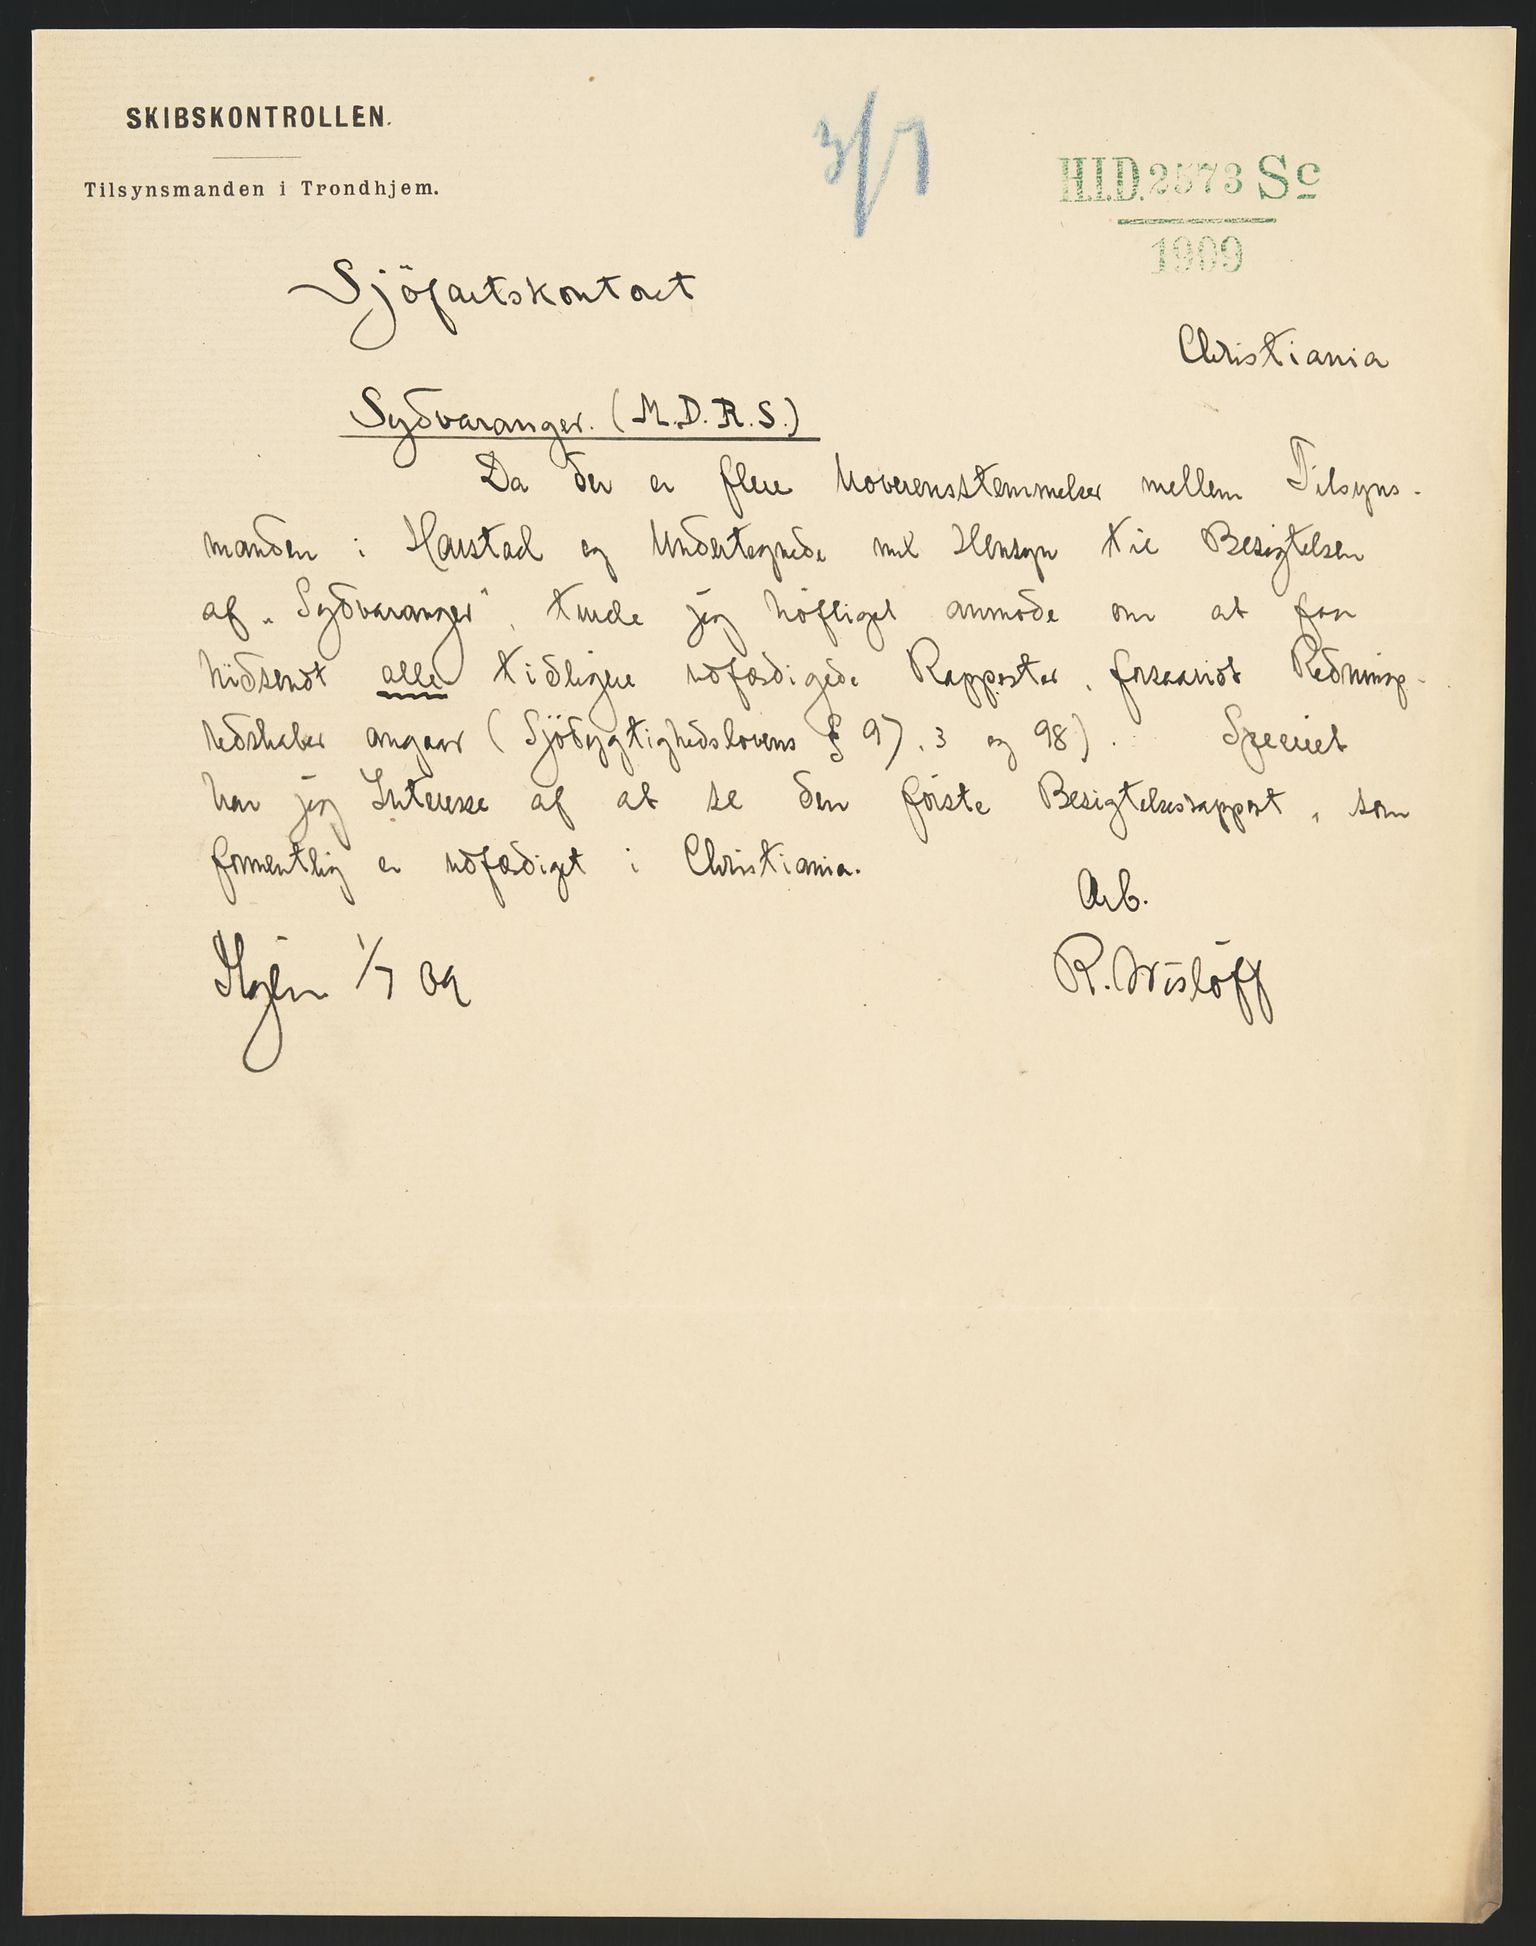 SKIBSKONTROLLEN.
Tilsynsmanden i Trondhjem.
3/7
H.I.D. 2573 Sc
1909
Sjöfartskontoret
Christiania
Sydvaranger. (M.D.R.S.)
Da der er flere Uoverensstemmelser mellem Tilsyns-
manden i Harstad og Undertegnede med Hensyn til Besigtelsen
af „Sydvaranger", turde jeg höfligst anmode om at faa
hidsendt alle tidligere udfærdigede Rapporter, forsaavidt Rednings-
redskaber angaar (Sjödygtighedslovens § 97, 3 og 98). Specielt
har jeg Interesse af at se den förste Besigtelsesrapport, som
formentlig er udfærdiget i Christiania.
Ærb.
1/7 09
R. Wislöff